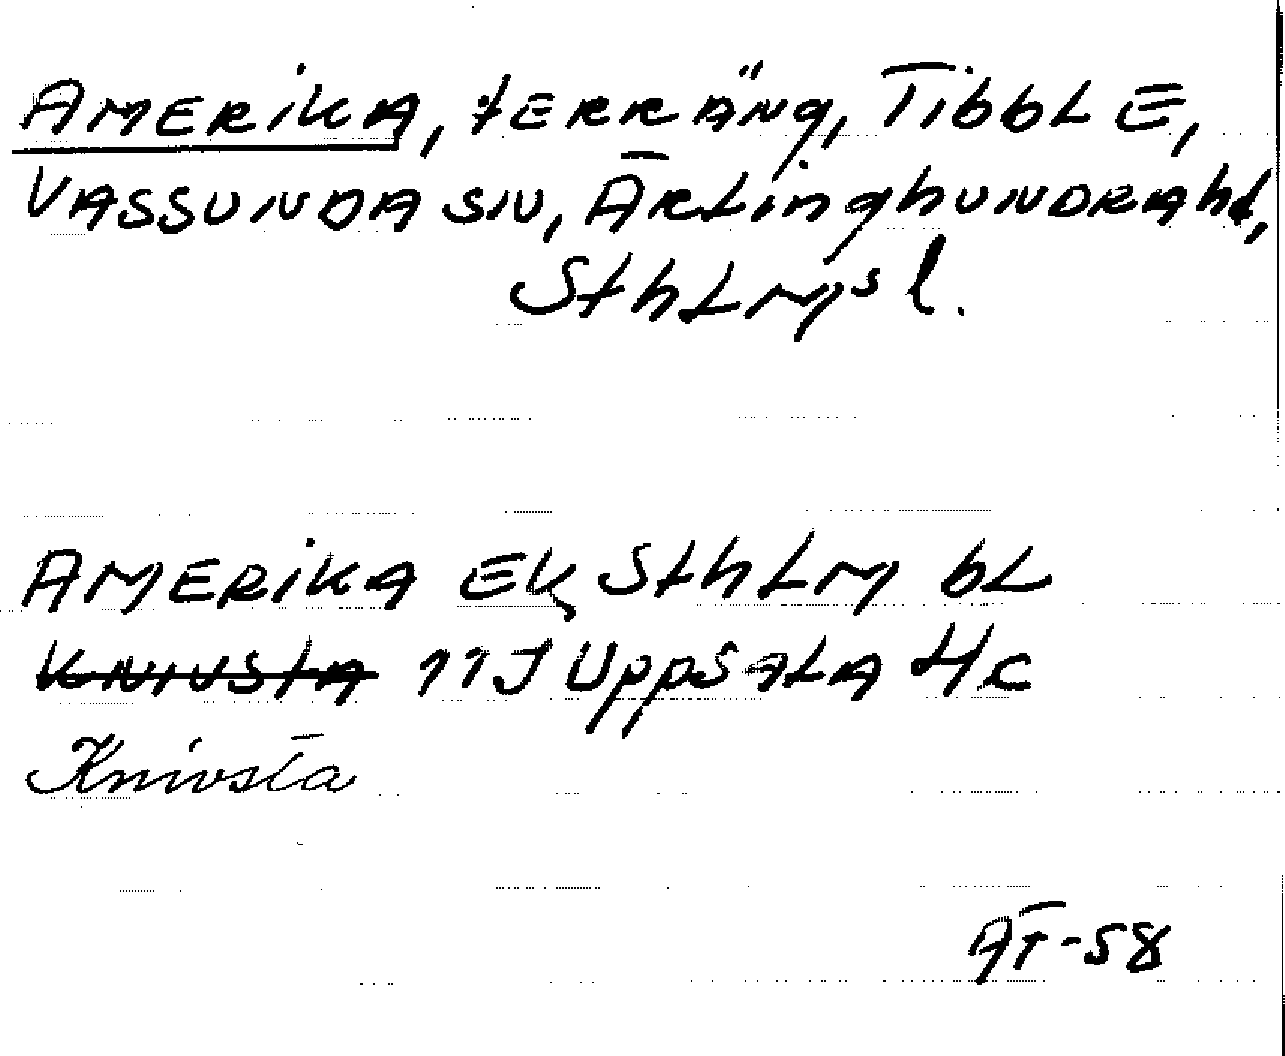 AMERiKA, tERRÄNg, Tibble,
VASSUNDA SN, Ärlinghundra hd,
Sthlms l.
AMERiKA EK Sthlm bl
Knivsta 11J UppsAlA 4c
Knivsta
ÄT-58